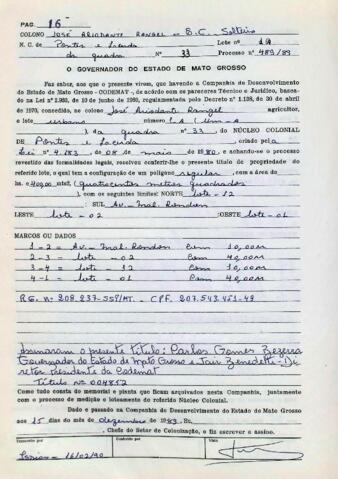 PAG. 16
COLONO JOSÉ ARIODANTE RANGEL - B.C. Solteiro
N. C. de Pontes e Lacerda Lote nº 1A
da quadra Nº 33 Processo nº 489/89
O GOVERNADOR DO ESTADO DE MATO GROSSO
Faz saber, aos que o presente virem, que havendo a Companhia de Desenvolvimento
do Estado de Mato Grosso - CODEMAT -, de acordo com os pareceres Técnico e Jurídico, basea-
da na Lei nº 2.989, de 10 de junho de 1980, regulamentada pelo Decreto nº 1.138, de 30 de abril
de 1970, concedido, ao colono José Ariodante Rangel agricultor,
e lote urbano nº 1-A (Um-A
) da quadra nº 33 do NÚCLEO COLONIAL
DE Pontes e Lacerda, criado pela
Lei nº 4.183 de 08 de maio de 1980, e achando-se o processo
revestido das formalidades legais, resolveu conferir-lhe o presente título de propriedade do
referido lote, o qual tem a configuração de um polígono regular, com a área de
Hs 0.400,00 mts², (quatrocentos metros quadrados
), com os seguintes limites: NORTE lote - 12
: SUL Av. Mal. Rondon
LESTE lote - 02 : OESTE lote - 01
MARCOS OU DADOS
1 - 2 = Av - Mal. Rondon Com 10,00M
2 - 3 = lote - 02 Com 40,00M
3 - 4 = lote - 12 Com 10,00M
4 - 1 = lote - 01 Com 40,00M
R.G. Nº 208.237-SSP/MT. - CPF. 207.543.451-49
Assinaram o presente título: Carlos Gomes Bezerra
Governador do Estado de Mato Grosso e Jair Benedetti - Di
retor presidente da Codemat
Título Nº 004852
Como tudo consta do memorial e planta que ficam arquivados nesta Companhia, juntamente
com o processo de medição e loteamento do referido Núcleo Colonial.
Dado e passado na Companhia de Desenvolvimento do Estado de Mato Grosso
aos 15 dias do mês de dezembro de 1989. Eu,
, Chefe do Setor de Colonização, o fiz escrever e assino.
Transcrito por
Conferido por
Visto
16/02/90